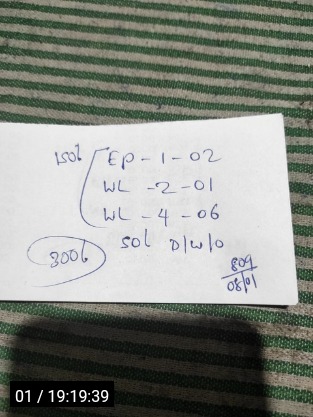 150b EP - 1 - 02
WL - 2 - 01
WL - 4 - 06
50b D/W/O
300b
809
08/01
01 / 19:19:39